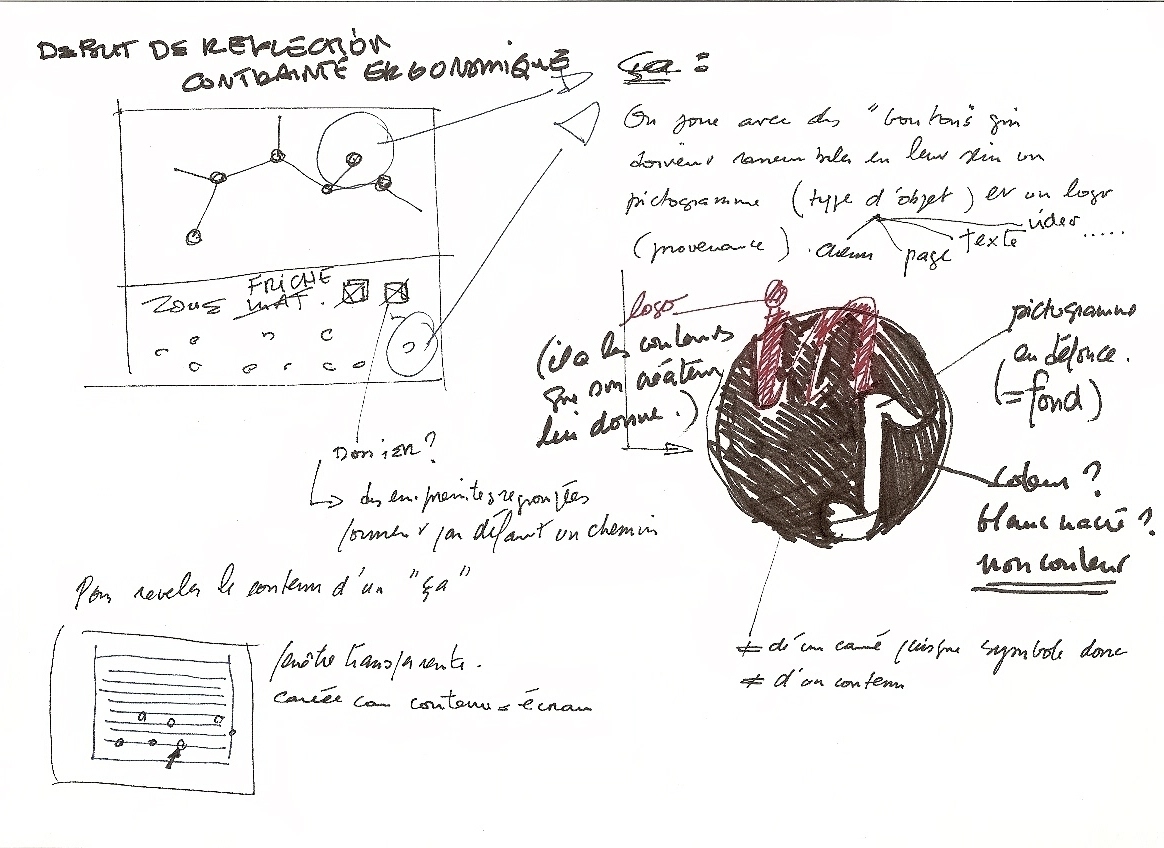 DEBUT DE REFLECTION
CONTRAINTE ERGONOMIQUE
ça :
On joue avec des "boutons" qui
doivent rassembler en leur sein un
pictogramme (type d'objet) et un logo
(provenance). chemin page texte video .....
ZONE FRICHE MAT.
logo
(il a les couleurs
que son créateur
lui donne.)
pictogramme
en défonce.
(= fond)
couleur ?
blanc nacré ?
non couleur
Dossier ?
des empreintes regroupées
forment par défaut un chemin
Pour reveler le contenu d'un "ça"
fenêtre transparente.
carrée car contenu = écran
≠ d'un carré puisque symbole donc
≠ d'un contenu